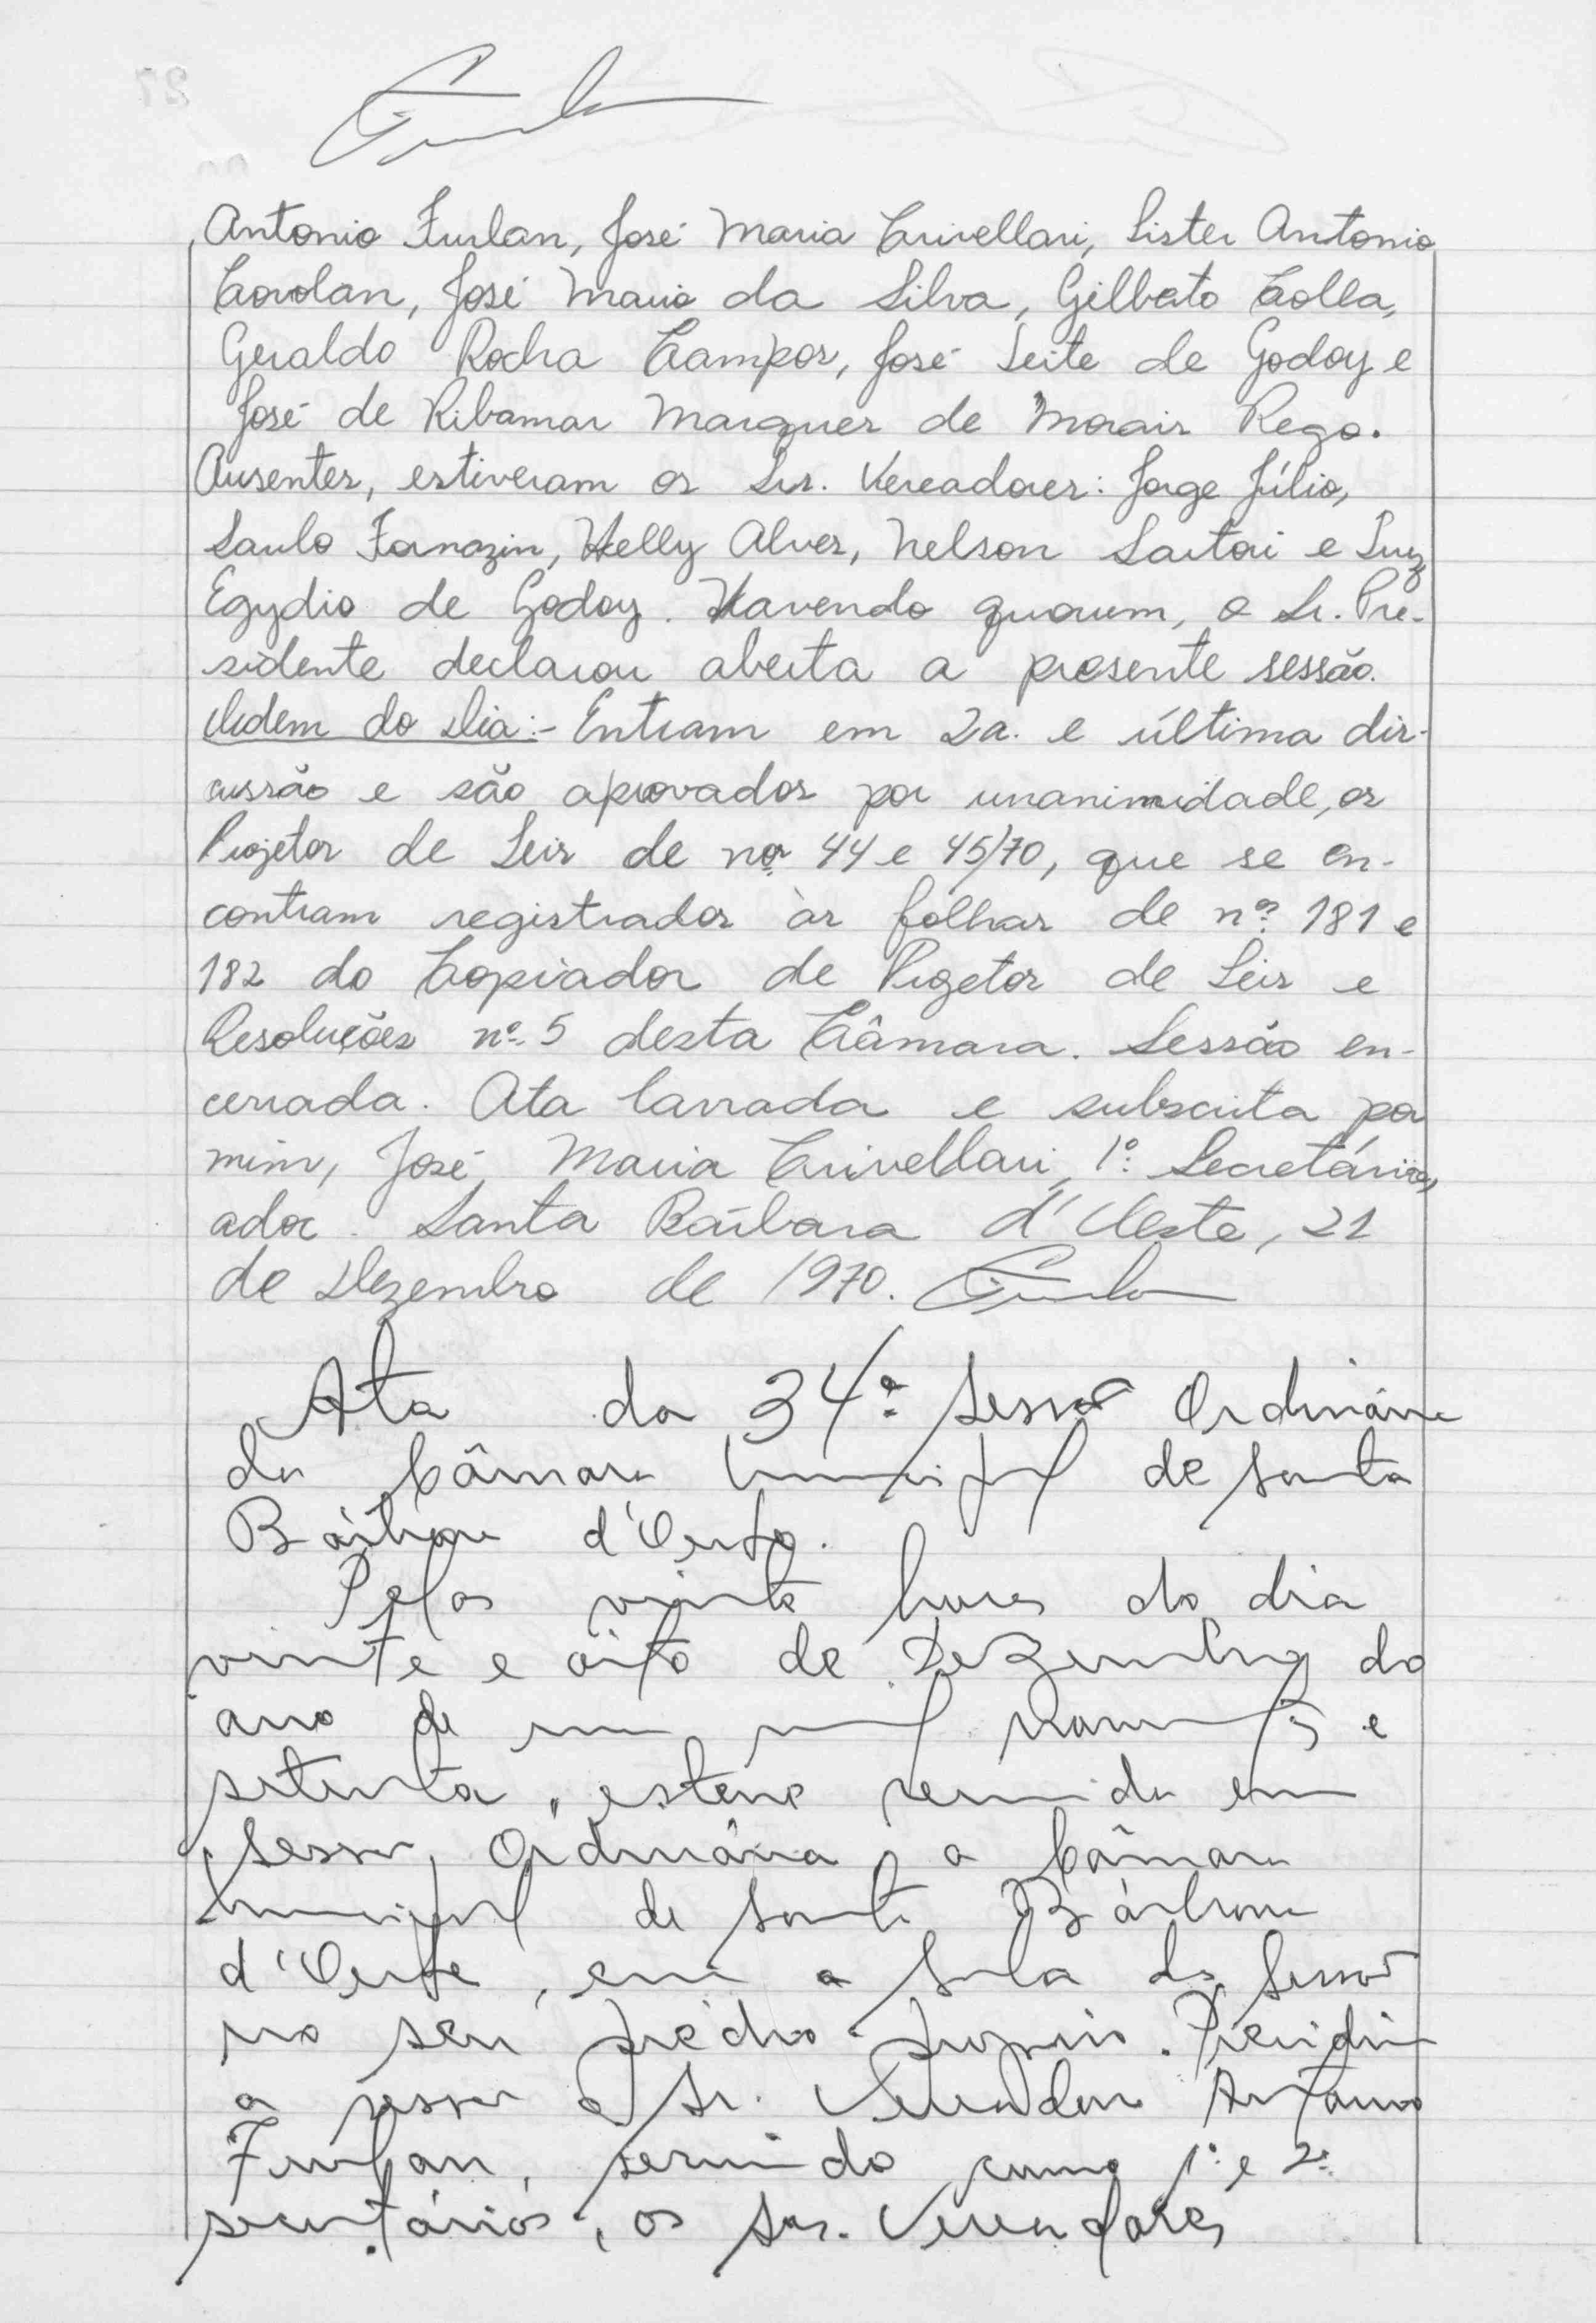 Antonio Furlan, José Maria Crivellari, Lister Antonio
Covolan, José Maria da Silva, Gilberto Colla,
Geraldo Rocha Campos, José Leite de Godoy e
José de Ribamar Marques de Morais Rego.
Ausentes, estiveram os Srs. Vereadores: Jorge Júlio,
Saulo Fornazin, Helly Alves, Nelson Sartori e Luiz
Egydio de Godoy. Havendo quorum, o Sr. Pre-
sidente declarou aberta a presente sessão.
Ordem do Dia:- Entram em 2a. e última dis-
cussão e são aprovados por unanimidade, os
Projetos de Leis de nos 44 e 45/70, que se en-
contram registrados às folhas de nos 181 e
182 do Copiador de Projetos de Leis e
Resoluções nº 5 desta Câmara. Sessão en-
cerrada. Ata lavrada e subscrita por
mim, José Maria Crivellari, 1º Secretário,
ador. Santa Bárbara d'Oeste, 21
de Dezembro de 1970.
Ata da 34ª Sessão Ordinária
da Câmara Municipal de Santa
Bárbara d'Oeste.
Pelas vinte horas do dia
vinte e oito de Dezembro do
ano de um mil novecentos e
setenta, esteve reunida em
Sessão Ordinária, a Câmara
Municipal de Santa Bárbara
d'Oeste, em a Sala da Sessão
no seu prédio próprio. Presidiu
a sessão o Sr. Vereador Antonio
Furlan, servindo como 1º e 2º
secretários, os Srs. Vereadores